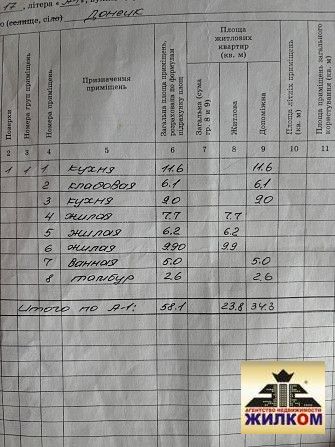 17, літера «А-1»
о (селище, село) Донецк
Поверхи
Номери груп приміщень
Номери приміщень
Призначення приміщень
Загальна площа приміщень, розрахована по формулам підрахунку площ
Площа житлових квартир (кв. м)
Загальна (сума гр. 8 и 9)
Житлова
Допоміжна
Площа літніх приміщень (кв. м)
Площа приміщень загального користування (кв. м)
2 3 4 5 6 7 8 9 10 11
1 1 1 кухня 11.6 11.6
2 кладовая 6.1 6.1
3 кухня 9.0 9.0
4 жилая 7.7 7.7
5 жилая 6.2 6.2
6 жилая 9.90 9.9
7 ванная 5.0 5.0
8 тамбур 2.6 2.6
Итого по А-1: 58.1 23.8 34.3
АГЕНТСТВО НЕДВИЖИМОСТИ
ЖИЛКОМ